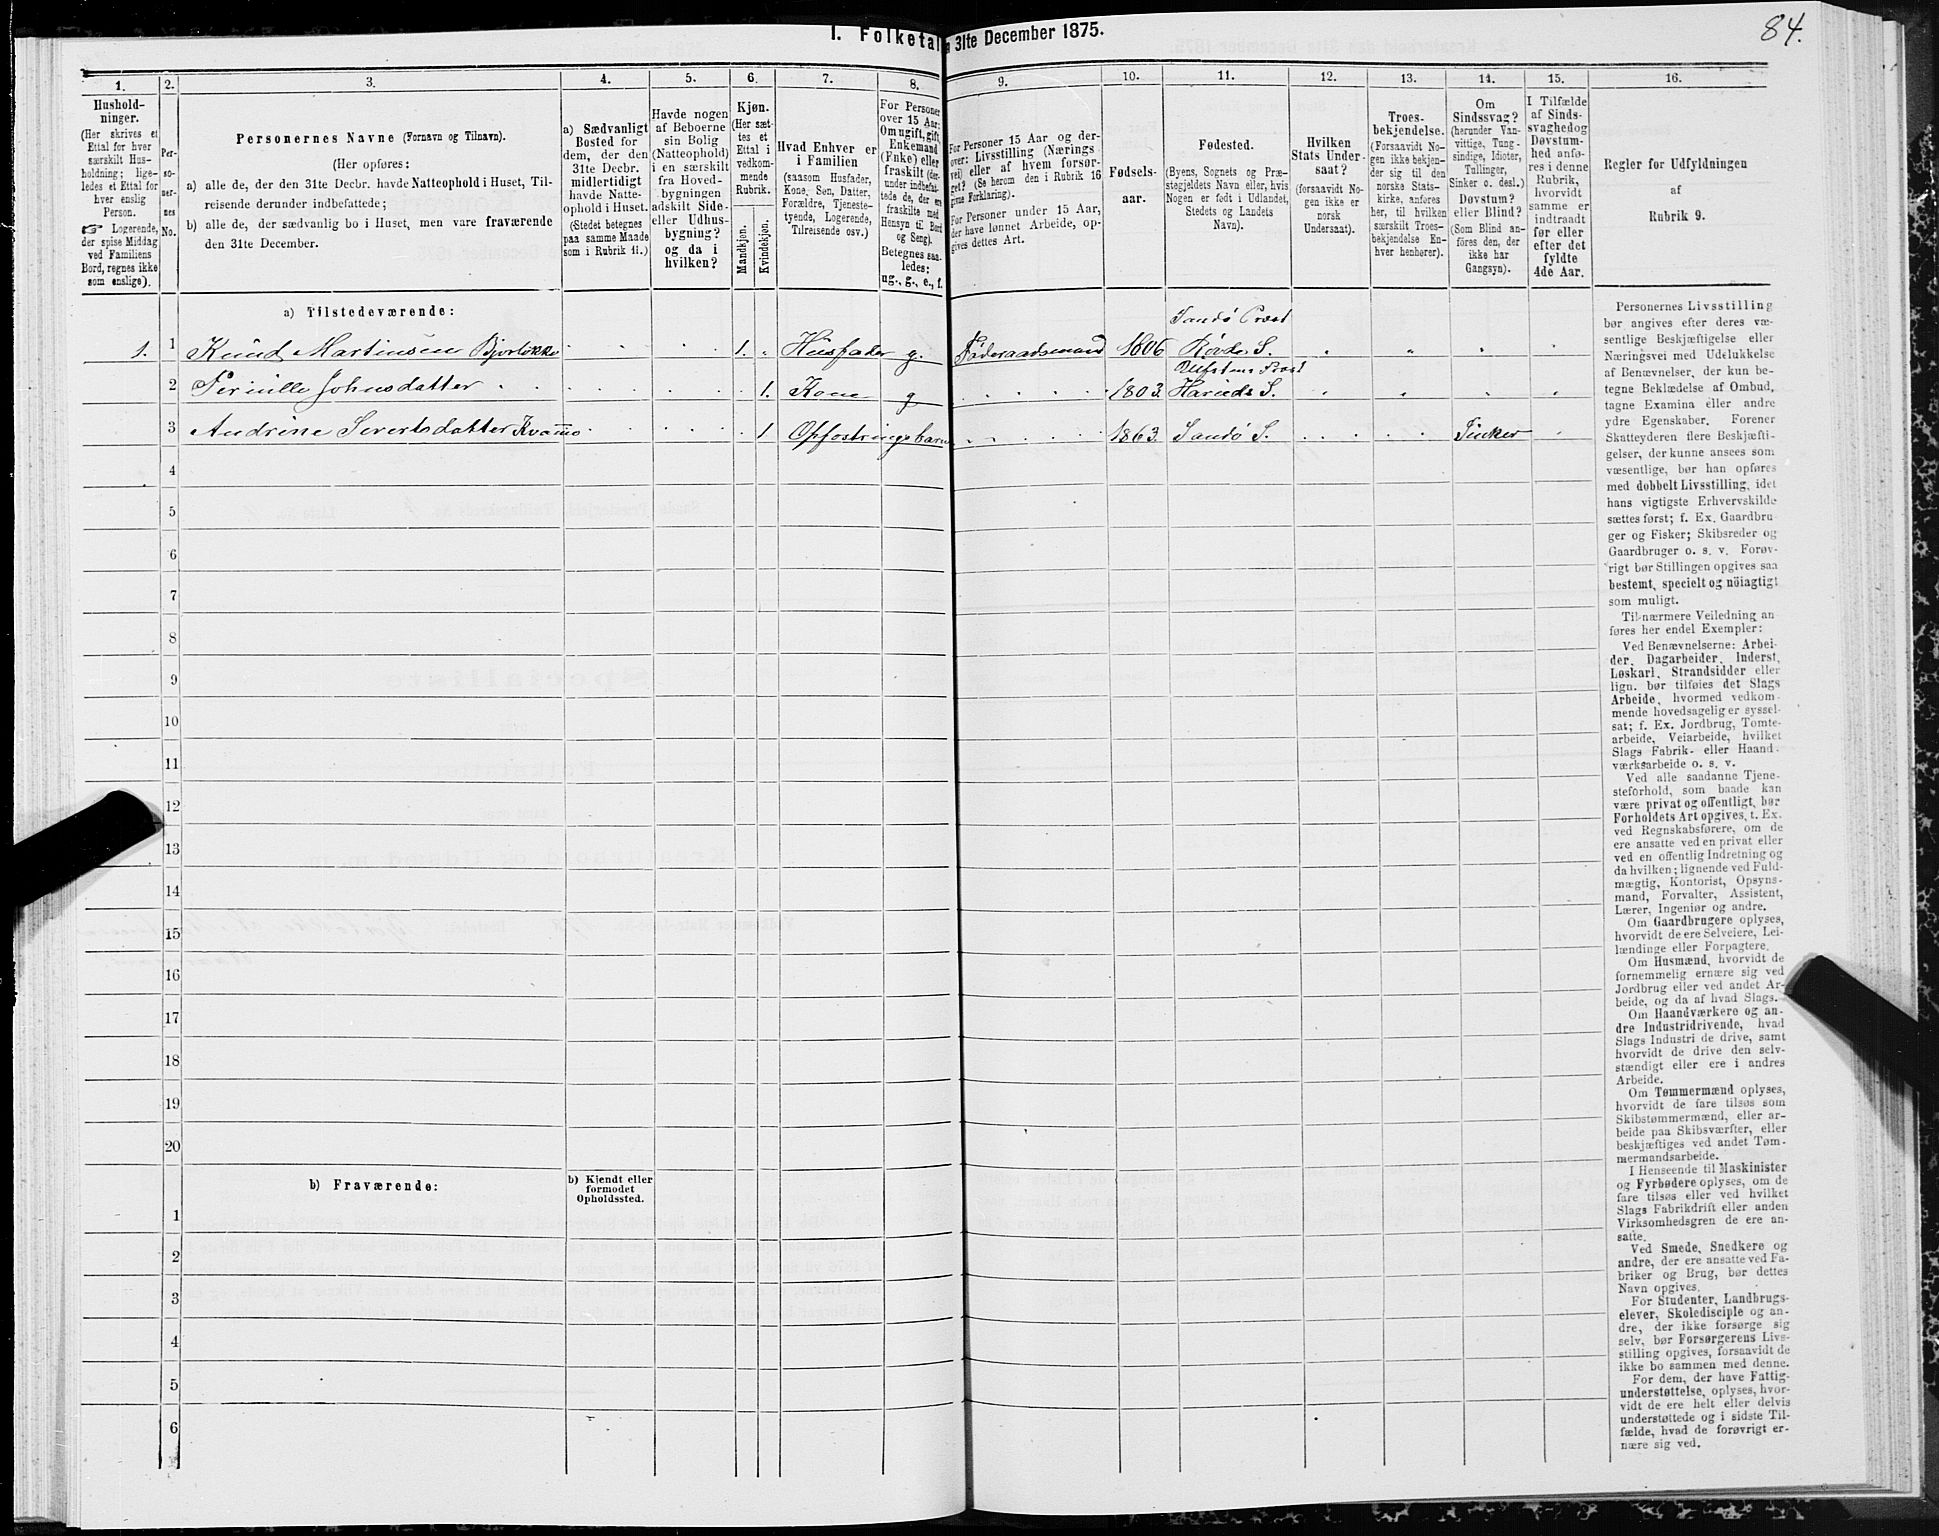 84.
I. Folketal 31te December 1875.
1. 2. 3. 4. 5. 6. 7. 8. 9. 10. 11. 12. 13. 14. 15. 16.
Hushold-
ninger.
(Her skrives et
Ettal for hver
særskilt Hus-
holdning; lige-
ledes et Ettal for
hver enslig
Person.
☞ Logerende,
der spise Middag
ved Familiens
Bord, regnes ikke
som enslige).
Per-
so-
ner-
nes
No.
Personernes Navne (Fornavn og Tilnavn).
(Her opføres:
a) alle de, der den 31te Decbr. havde Natteophold i Huset, Til-
reisende derunder indbefattede;
b) alle de, der sædvanlig bo i Huset, men vare fraværende
den 31te December.
a) Sædvanligt
Bosted for
dem, der den
31te Decbr.
midlertidigt
havde Natte-
ophold i Huset.
(Stedet betegnes
paa samme Maade
som i Rubrik 11.)
Havde nogen
af Beboerne
sin Bolig
(Natteophold)
i en særskilt
fra Hoved-
bygningen
adskilt Side-
eller Udhus-
bygning?
og da i
hvilken?
Kjøn.
(Her sæt-
tes et
Ettal i
vedkom-
mende
Rubrik.
Mandkjøn.
Kvindekjøn.
Hvad Enhver er
i Familien
(saasom Husfader,
Kone, Søn, Datter,
Forældre, Tjeneste-
tyende, Logerende,
Tilreisende osv.)
For Personer
over 15 Aar:
Om ugift, gift,
Enkemand
(Enke) eller
fraskilt (der-
under indbefat-
tede de, der ere
fraskilte med
Hensyn til Bord
og Seng).
Betegnes saa-
ledes:
ug., g., e., f.
For Personer 15 Aar og der-
over: Livsstilling (Nærings-
vei) eller af hvem forsør-
get? (Se herom den i Rubrik 16
givne Forklaring).
For Personer under 15 Aar,
der have lønnet Arbeide, op-
gives dettes Art.
Fødsels-
aar.
Fødested.
(Byens, Sognets og Præ-
stegjeldets Navn eller, hvis
Nogen er født i Udlandet,
Stedets og Landets
Navn).
Hvilken
Stats Under-
saat?
(forsaavidt No-
gen ikke er
norsk
Undersaat).
Troes-
bekjendelse.
(Forsaavidt No-
gen ikke bekjen-
der sig til den
norske Stats-
kirke, anføres
her, til hvilken
særskilt Troes-
bekjendelse En-
hver henhører).
Om
Sindssvag?
(herunder Van-
vittige, Tung-
sindige, Idioter,
Tullinger,
Sinker o. desl.)
Døvstum?
eller Blind?
(Som Blind an-
føres den, der
ikke har
Gangsyn).
I Tilfælde
af Sinds-
svaghed og
Døvstum-
hed anfø-
res i denne
Rubrik,
hvorvidt
samme er
indtraadt
før eller
efter det
fyldte
4de Aar.
Regler for Udfyldningen
af
Rubrik 9.
a) Tilstedeværende:
Sandø Præst
1. 1 Knud Martinsen Bjørløkke 1. Husfader g. Føderaadsmand 1806 Røvde S.
Ulfstens Præst
2 Pernille Johnsdatter 1. Kone g 1803. Hareids S.
3 Andrine Sivertsdatter Kvamme 1 Opfostringsbarn 1863. Sandø S. Sinker
4
5
6
7
8
9
10
11
12
13
14
15
16
17
18
19
20
b) Fraværende:
b) Kjendt eller
formodet
Opholdssted.
1
2
3
4
5
6
Personernes Livsstilling
bør angives efter deres væ-
sentlige Beskjæftigelse eller
Næringsvei med Udelukkelse
af Benævnelser, der kun be-
tegne Beklædelse af Ombud,
tagne Examina eller andre
ydre Egenskaber. Forener
Skatteyderen flere Beskjæfti-
gelser, der kunne ansees som
væsentlige, bør han opføres
med dobbelt Livsstilling, idet
hans vigtigste Erhvervskilde
sættes først; f. Ex. Gaardbru-
ger og Fisker; Skibsreder og
Gaardbruger o. s. v. Forøv-
rigt bør Stillingen opgives saa
bestemt, specielt og nöiagtigt
som muligt.
Til nærmere Veiledning an-
føres her endel Exempler:
Ved Benævnelserne: Arbei-
der, Dagarbeider, Inderst,
Løskarl, Strandsidder eller
lign. bør tilføies det Slags
Arbeide, hvormed vedkom-
mende hovedsagelig er syssel-
sat; f. Ex. Jordbrug, Tomte-
arbeide, Veiarbeide, hvilket
Slags Fabrik- eller Haand-
værksarbeide o. s. v.
Ved alle saadanne Tjene-
steforhold, som baade kan
være privat og offentligt, bør
Forholdets Art opgives, t. Ex.
ved Regnskabsførere, om de
ere ansatte ved en privat eller
ved en offentlig Indretning og
da hvilken; lignende ved Fuld-
mægtig, Kontorist, Opsyns-
mand, Forvalter, Assistent,
Lærer, Ingeniør og andre.
Om Gaardbrugere oplyses,
hvorvidt de ere Selveiere, Lei-
lændinge eller Forpagtere.
Om Husmænd, hvorvidt de
fornemmelig ernære sig ved
Jordbrug eller ved andet Ar-
beide, og da af hvad Slags.
Om Haandværkere og an-
dre Industridrivende, hvad
Slags Industri de drive, samt
hvorvidt de drive den selv-
stændigt eller ere i andres
Arbeide.
Om Tømmermænd oplyses,
hvorvidt de fare tilsøs som
Skibstømmermænd, eller ar-
beide paa Skibsværfter, eller
beskjæftiges ved andet Tøm-
mermandsarbeide.
I Henseende til Maskinister
og Fyrbødere oplyses, om de
fare tilsøs eller ved hvilket
Slags Fabrikdrift eller anden
Virksomhedsgren de ere an-
satte.
Ved Smede, Snedkere og
andre, der ere ansatte ved Fa-
briker og Brug, bør dettes
Navn opgives.
For Studenter, Landbrugs-
elever, Skoledisciple og an-
dre, der ikke forsørge sig
selv, bør Forsørgerens Livs-
stilling opgives, forsaavidt de
ikke bo sammen med denne.
For dem, der have Fattig-
understøttelse, oplyses, hvor-
vidt de ere helt eller delvis
understøttede og i sidste Til-
fælde, hvad de forøvrigt er-
nære sig ved.